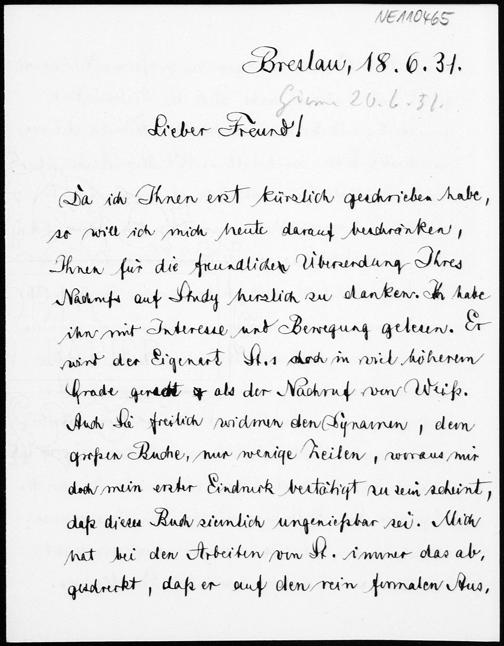 NE110465
Breslau, 18.6.31.
20.6.31.
Lieber Freund!
Da ich Ihnen erst kürzlich geschrieben habe,
so will ich mich heute darauf beschränken,
Ihnen für die freundlichen Übersendung Ihres
Nachrufs auf Study herzlich zu danken. Ich habe
ihn mit Interesse und Bewegung gelesen. Er
wird der Eigenart St.s doch in viel höherem
Grade gerecht als der Nachruf von Weiß.
Auch Sie freilich widmen den Dynamen, dem
großen Buche, nur wenige Zeilen, woraus mir
doch mein erster Eindruck bestätigt zu sein scheint,
daß dieses Buch ziemlich ungenießbar sei. Mich
hat bei den Arbeiten von St. immer das ab,
geschreckt, daß er auf den rein formalen Aus,